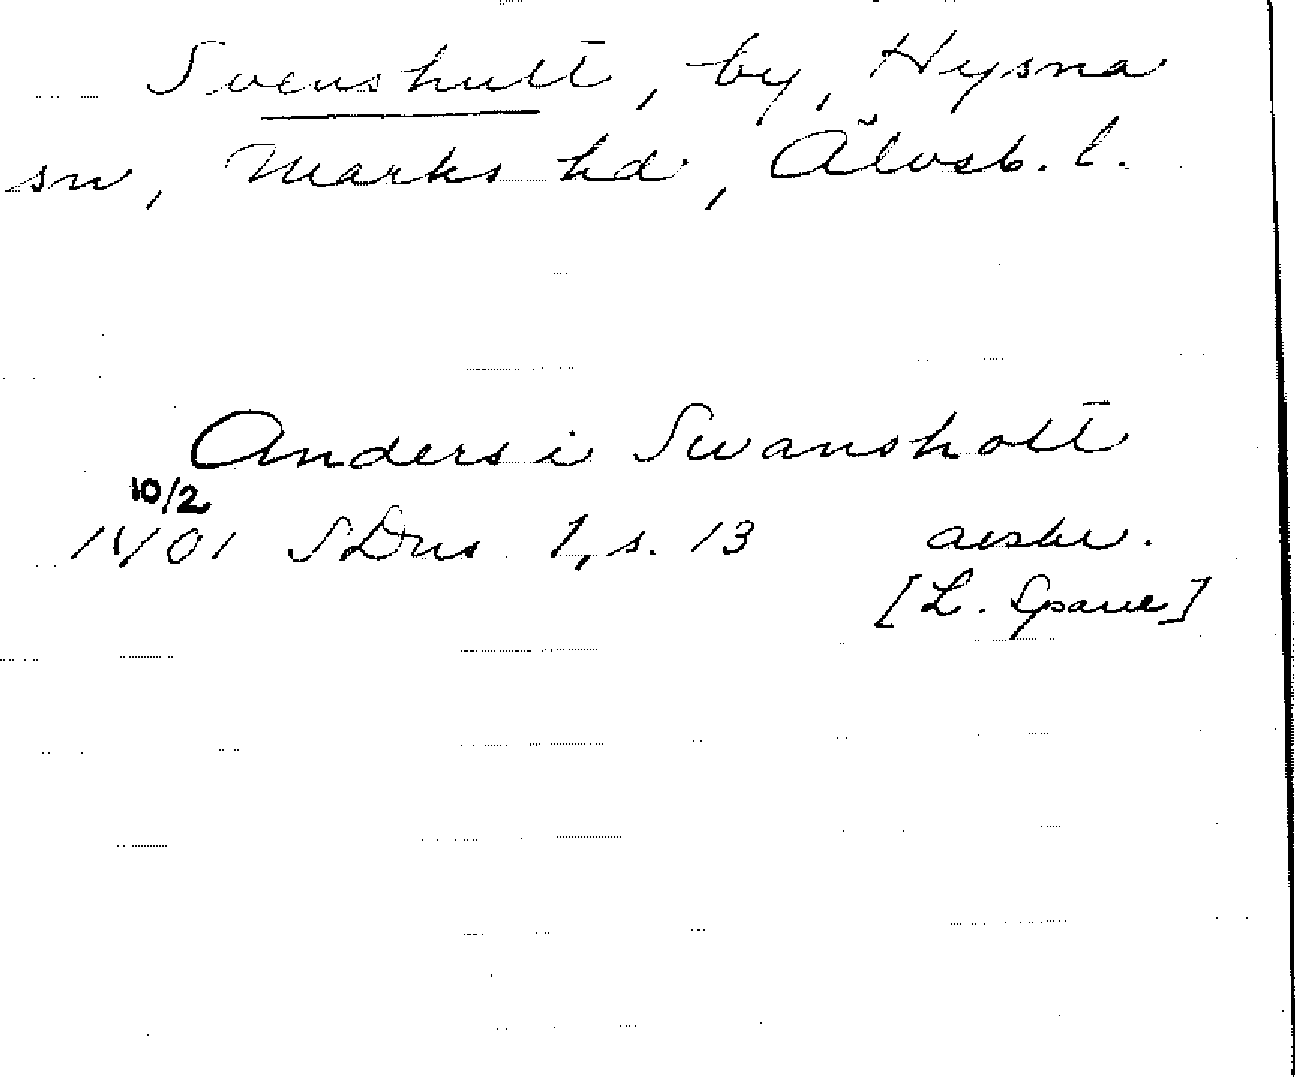 Svenshult, by, Hysna
sn, Marks hd, Älvsb. l.
Anders i Swansholt
10/2
1401 SDns 1, s. 13 avskr.
[L. Sparre]